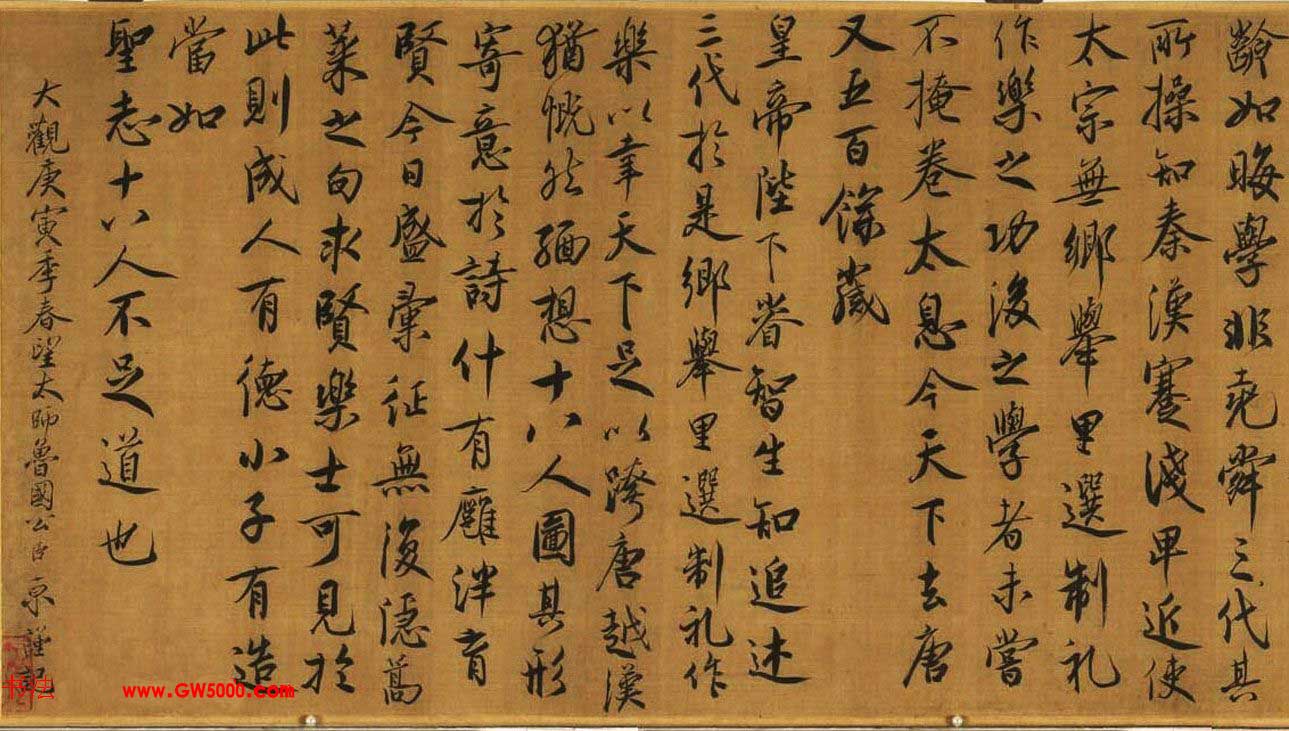 齡如晦學非堯舜三代其
所操知秦漢蹇淺卑近使
太宗無鄉舉里選制礼
作樂之功後之學者未嘗
不掩卷太息今天下去唐
又五百餘歲
皇帝陛下睿智生知追述
三代於是鄉舉里選制礼作
樂以幸天下足以跨唐越漢
猶慨然緬想十八人圖其形
寄意於詩什有廱泮育
賢今日盛彙征無復隱蒿
萊之句求賢樂士可見於
此則成人有德小子有造
當如
聖志十八人不足道也
大觀庚寅季春望太師魯國公臣京謹記
www.GW5000.com
书法